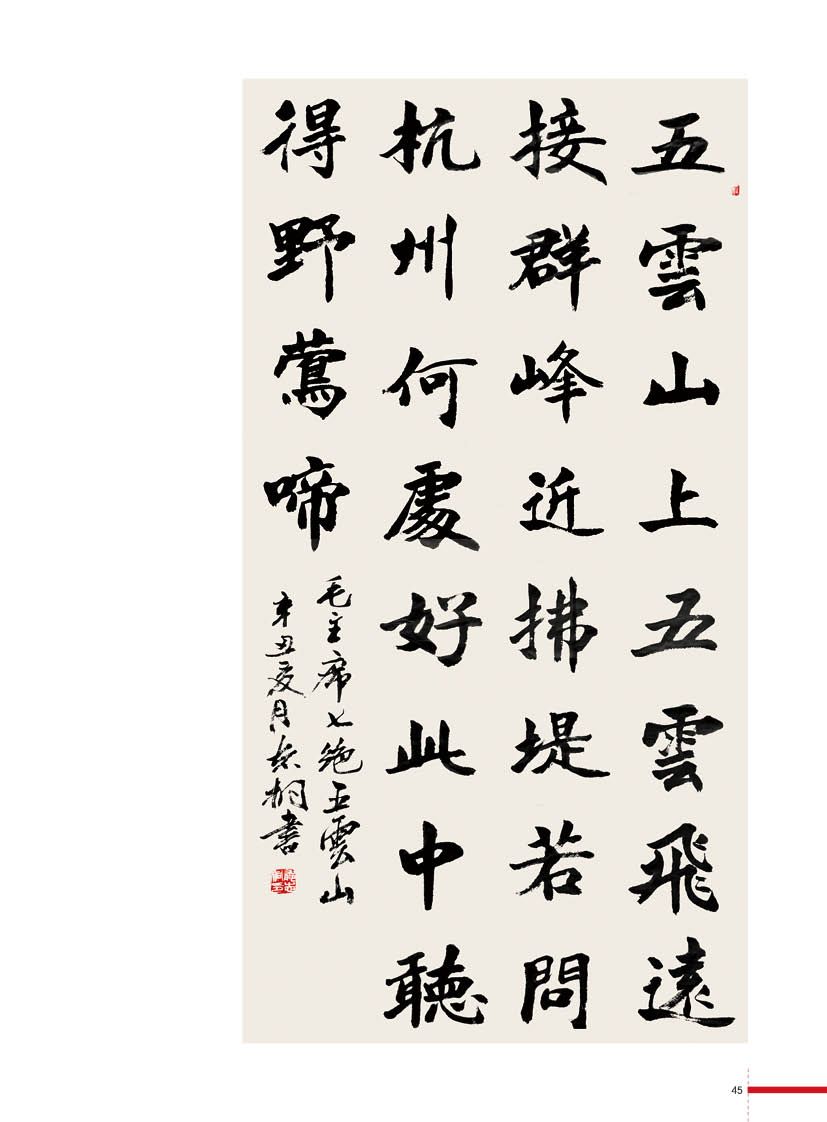 五雲山上五雲飛遠
接群峰近拂堤若問
杭州何處好此中聽
得野鶯啼
毛主席七絶五雲山
辛丑夏月桐書
45